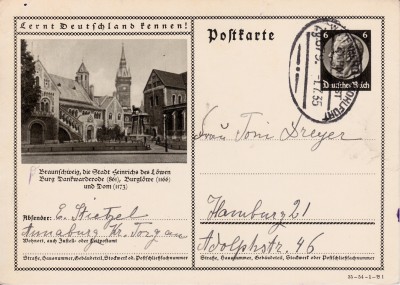 Lernt Deutschland kennen!
Postkarte
6 6
Deutsches Reich
1.7.35
Braunschweig, die Stadt Heinrichs des Löwen
Burg Dankwarderode (861), Burglöwe (1166)
und Dom (1173)
Absender: E. Stietzel
Annaburg Kr. Torgau
Wohnort, auch Zustell- oder Leitpostamt
Straße, Hausnummer, Gebäudeteil, Stockwerk od. Postschließfachnummer
Frau Toni Dreyer
Hamburg 21
Adolphstr. 46
Straße, Hausnummer, Gebäudeteil, Stockwerk oder Postschließfachnummer